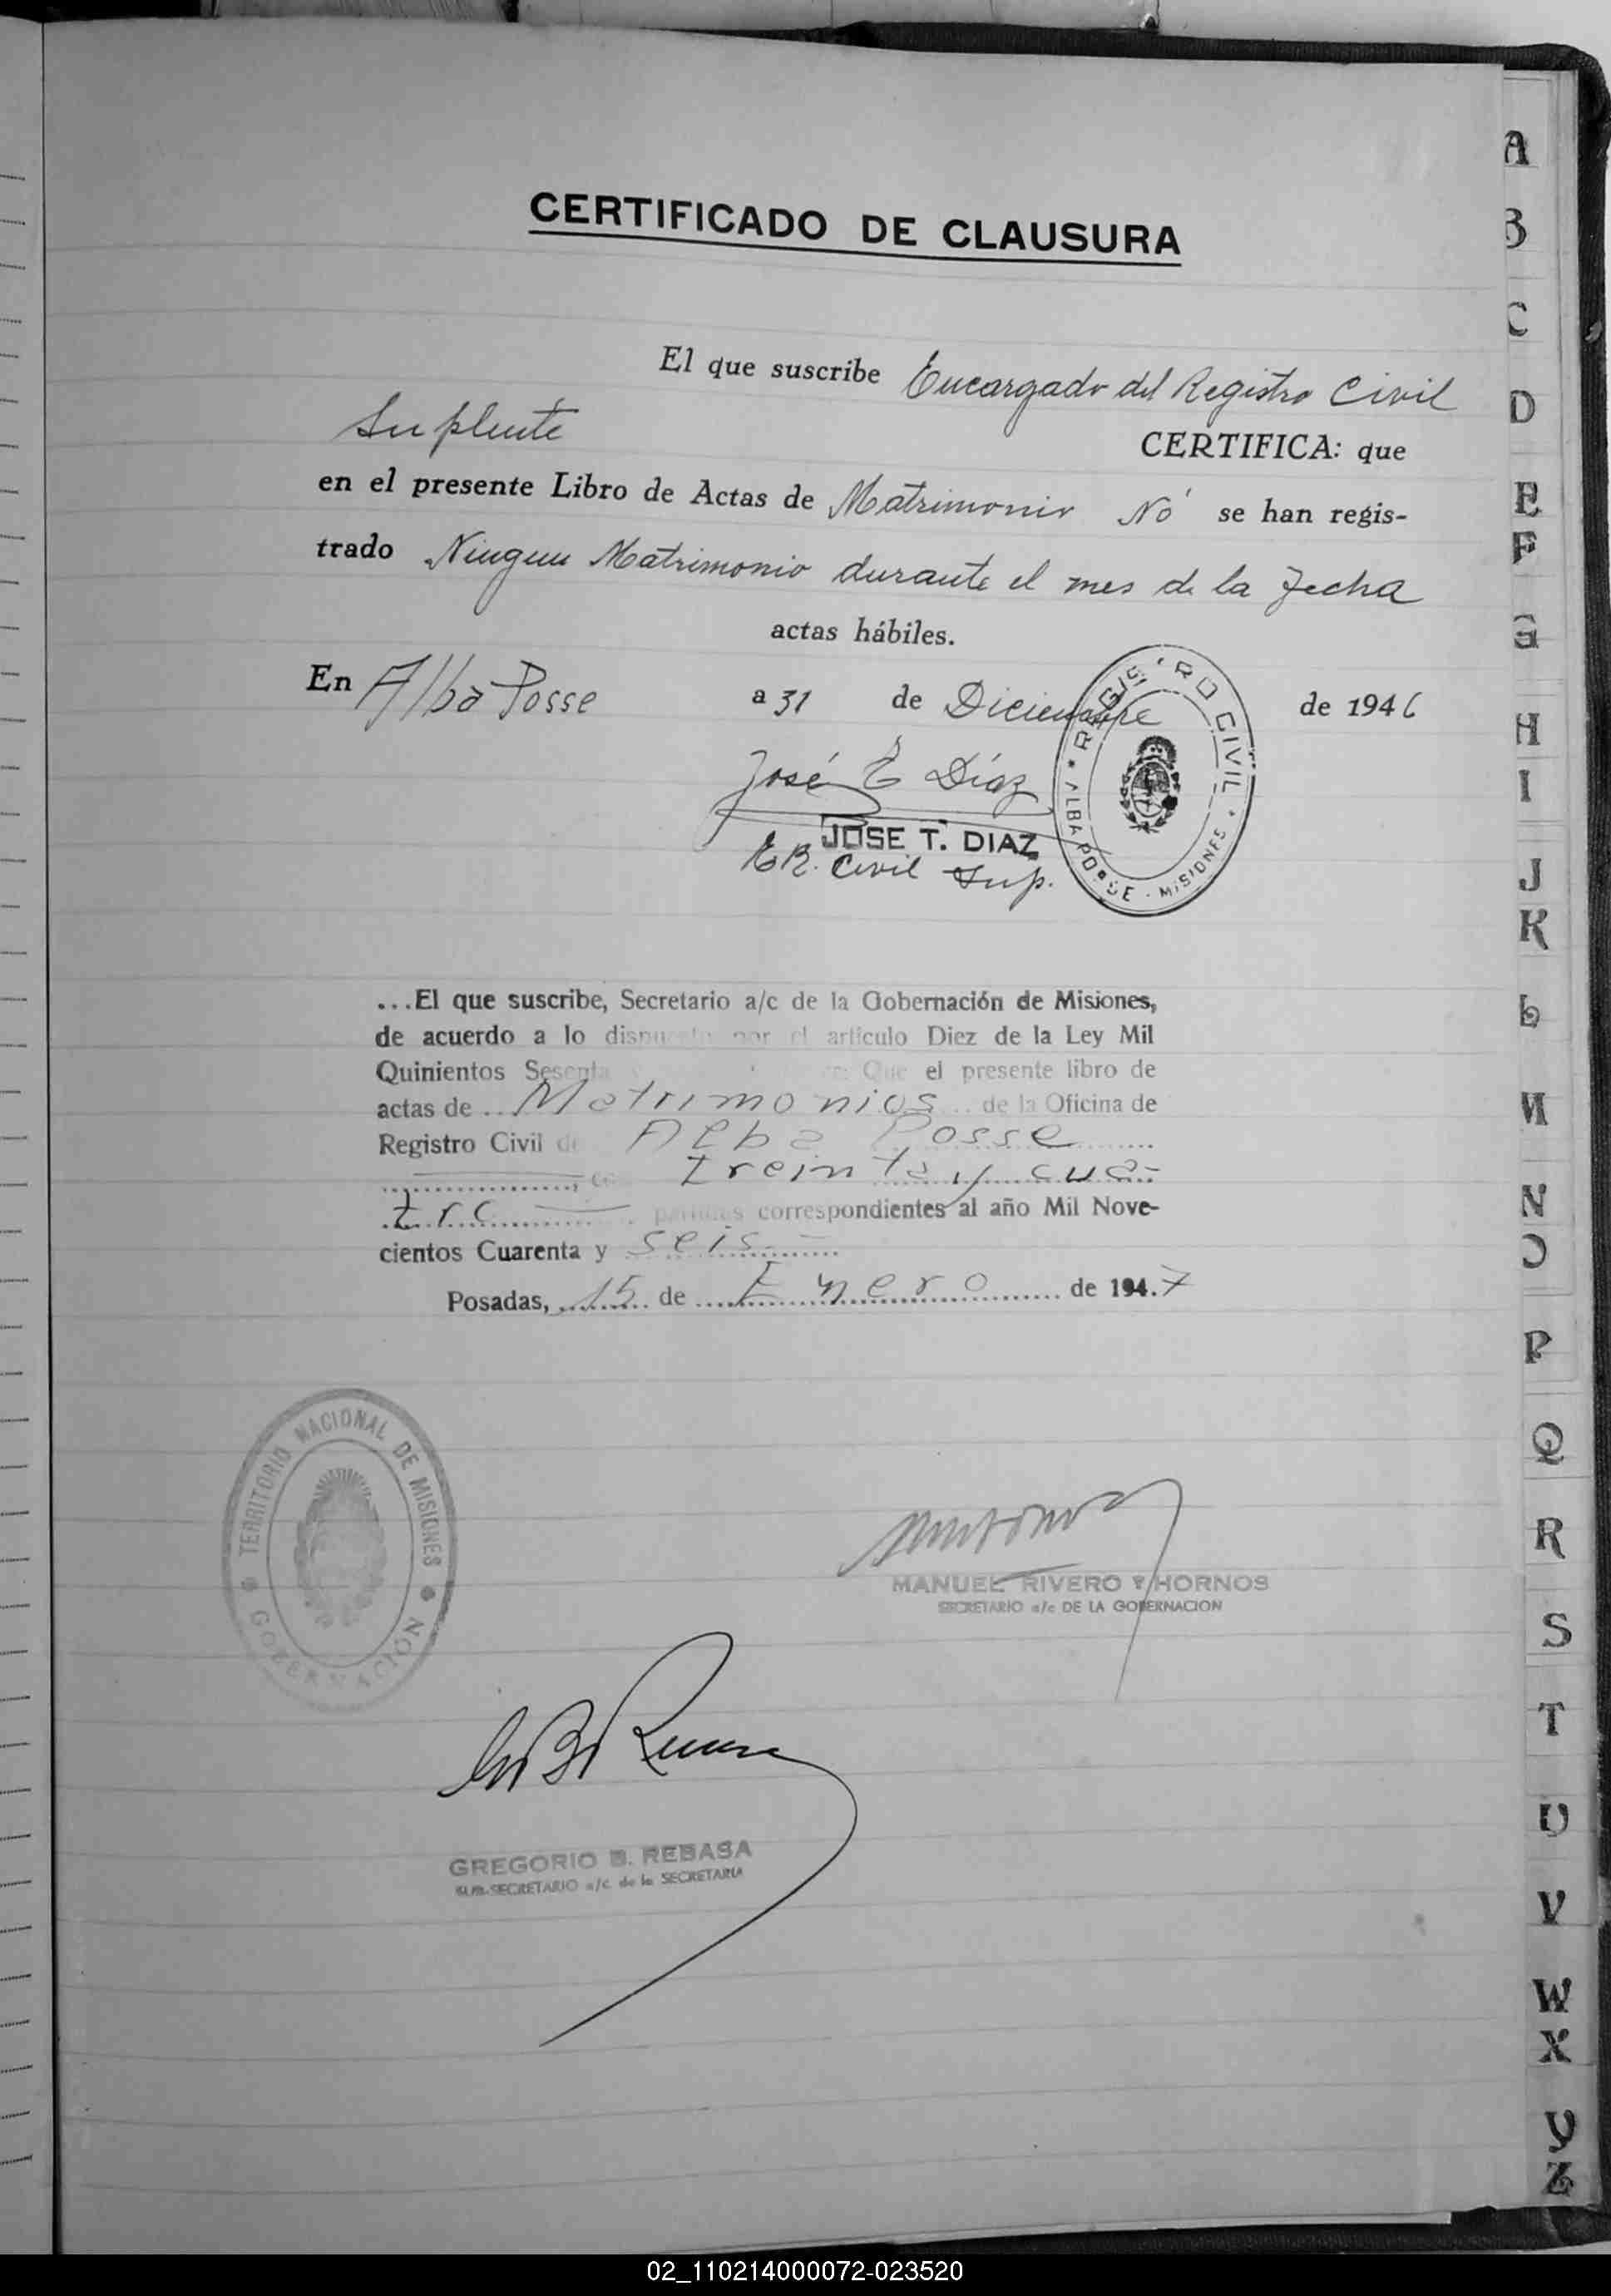 CERTIFICADO DE CLAUSURA
El que suscribe Encargado del Registro Civil
Suplente CERTIFICA: que
en el presente Libro de Actas de Matrimonio No se han regis-
trado Ningun Matrimonio durante el mes de la fecha
actas hábiles.
En Alba Posse a 31 de Diciembre de 1946
REGISTRO CIVIL
ALBA POSSE - MISIONES
José T Díaz
JOSE T. DIAZ
E R. Civil Sup.
...El que suscribe, Secretario a/c de la Gobernación de Misiones,
de acuerdo a lo dispuesto por el artículo Diez de la Ley Mil
Quinientos Sesenta Que el presente libro de
actas de Matrimonios de la Oficina de
Registro Civil de Alba Posse
treinta y cua-
tro partidas correspondientes al año Mil Nove-
cientos Cuarenta y seis
Posadas, 15 de Enero de 1947
TERRITORIO NACIONAL DE MISIONES
GOBERNACIÓN
MANUEL RIVERO Y HORNOS
SECRETARIO a/c DE LA GOBERNACION
GREGORIO B. REBASA
SUB-SECRETARIO a/c de la SECRETARIA
A
B
C
D
E
F
G
H
I
J
K
L
M
N
O
P
Q
R
S
T
U
V
W
X
Y
Z
02_110214000072-023520